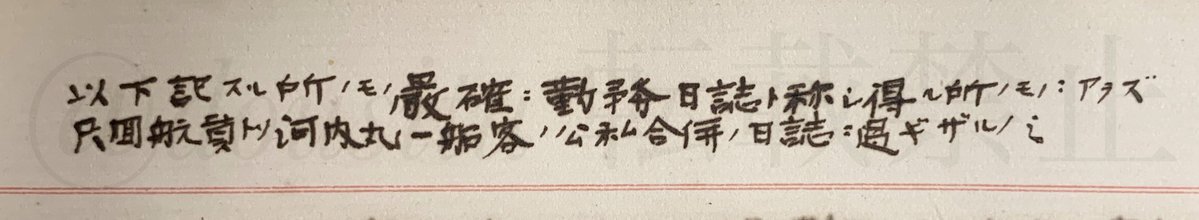 以下記スル所ノモノ厳確ニ勤務日誌ト称シ得ル所ノモノニアラズ
只回航員 河内丸ノ一船客ノ公私合併ノ日誌ニ過ギザルノミ